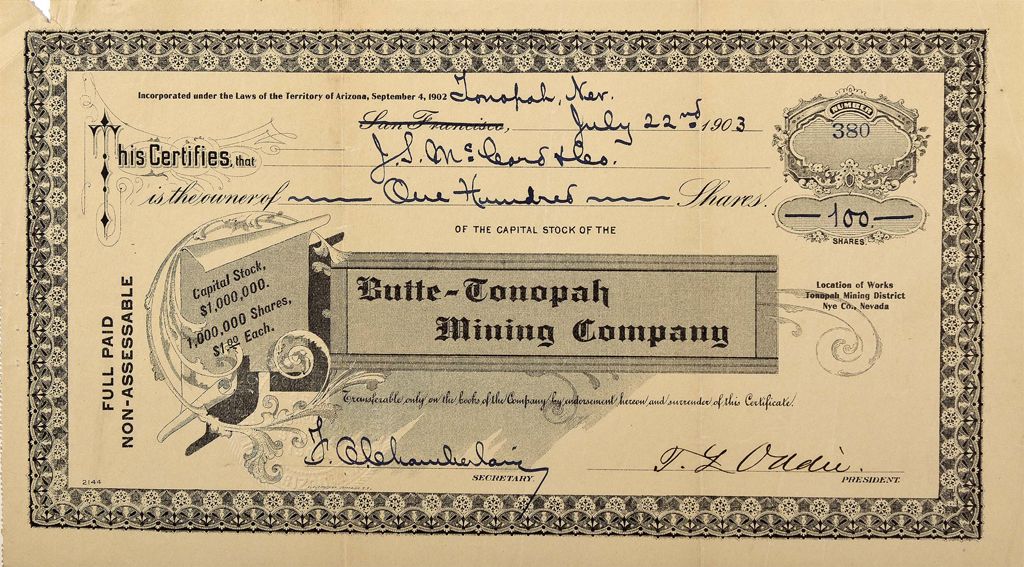 Incorporated under the Laws of the Territory of Arizona, September 4, 1902
Tonopah, Nev.
San Francisco, July 22nd 1903
NUMBER
380
This Certifies, that
J. S. McCord & Co.
is the owner of One Hundred Shares.
100
SHARES
OF THE CAPITAL STOCK OF THE
Capital Stock,
$1,000,000.
1,000,000 Shares,
$1.00 Each.
Butte-Tonopah
Mining Company
Location of Works
Tonopah Mining District
Nye Co., Nevada
FULL PAID
NON-ASSESSABLE
Transferable only on the books of the Company by endorsement hereon and surrender of this Certificate.
F. A. Chamberlain
SECRETARY.
T. L. Oddie.
PRESIDENT.
2144